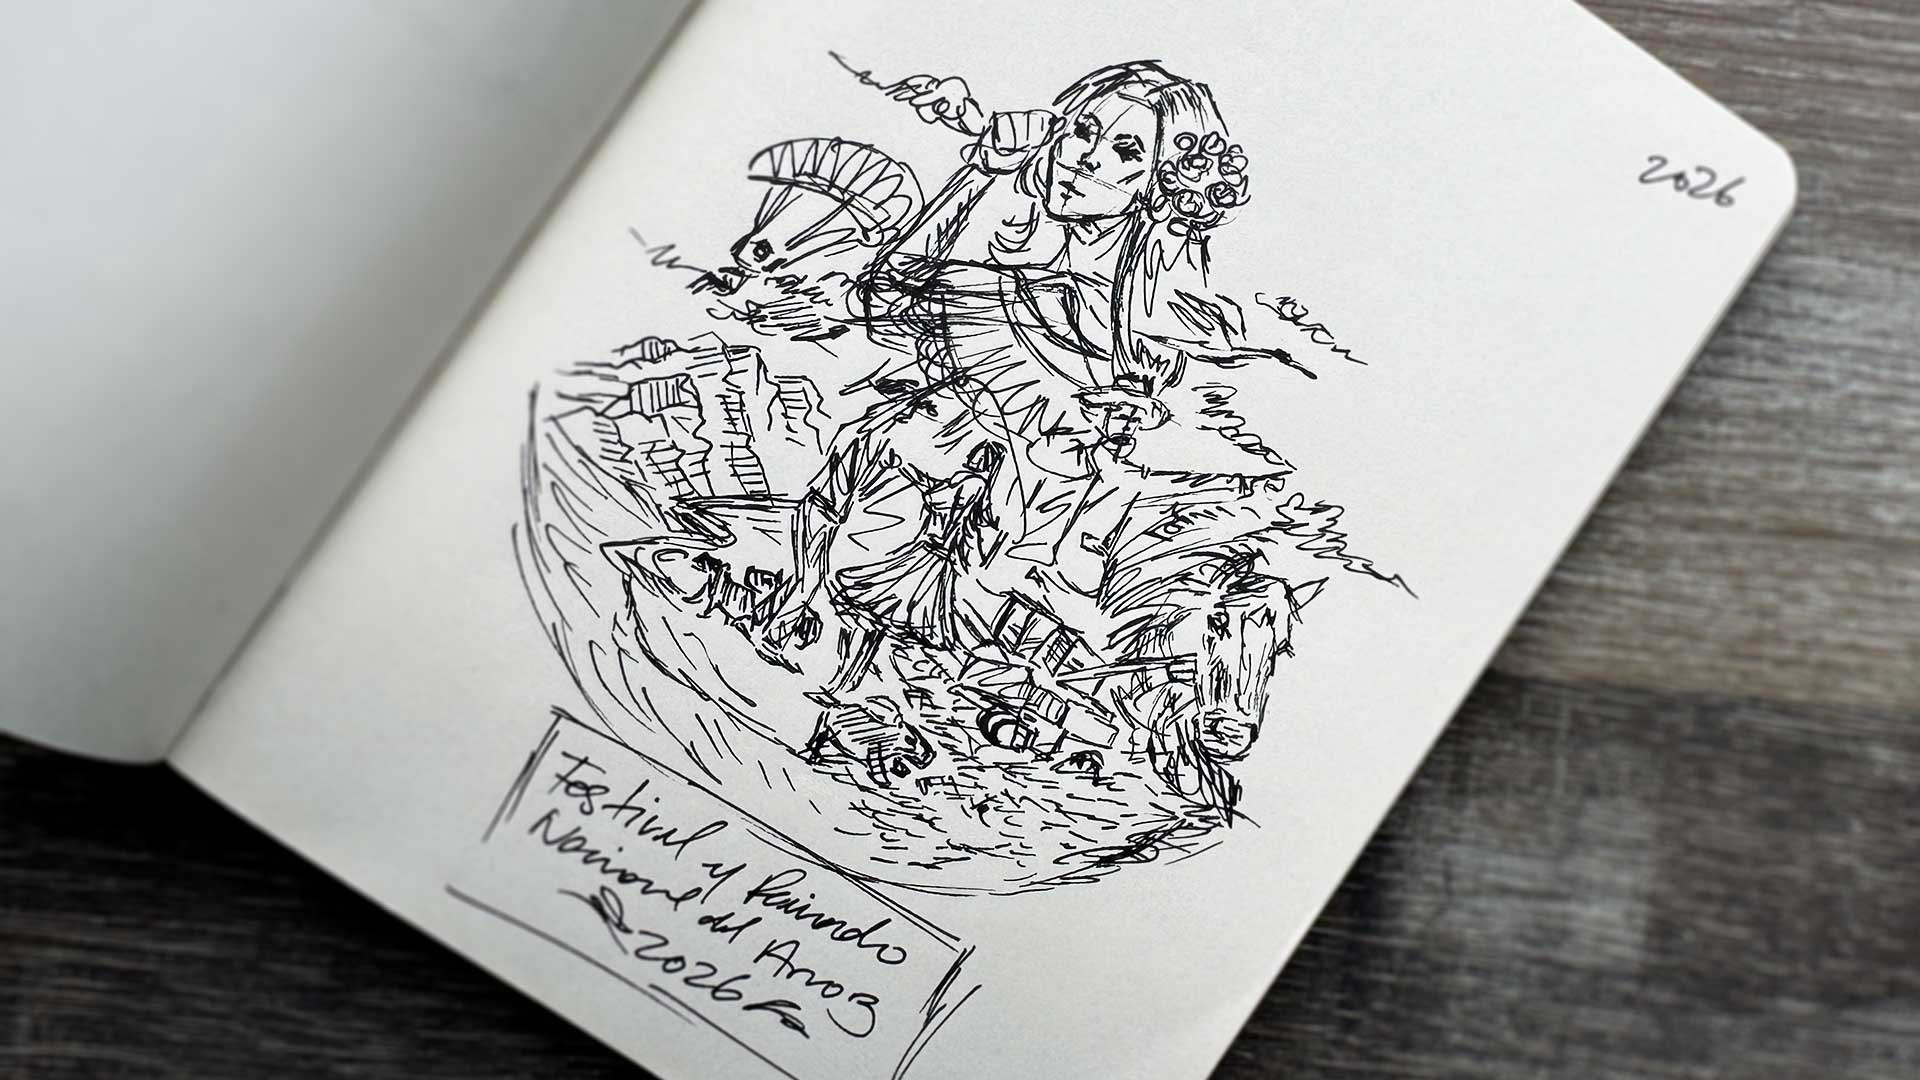 2026
Festival y Reinado
Nacional del Arroz
2026